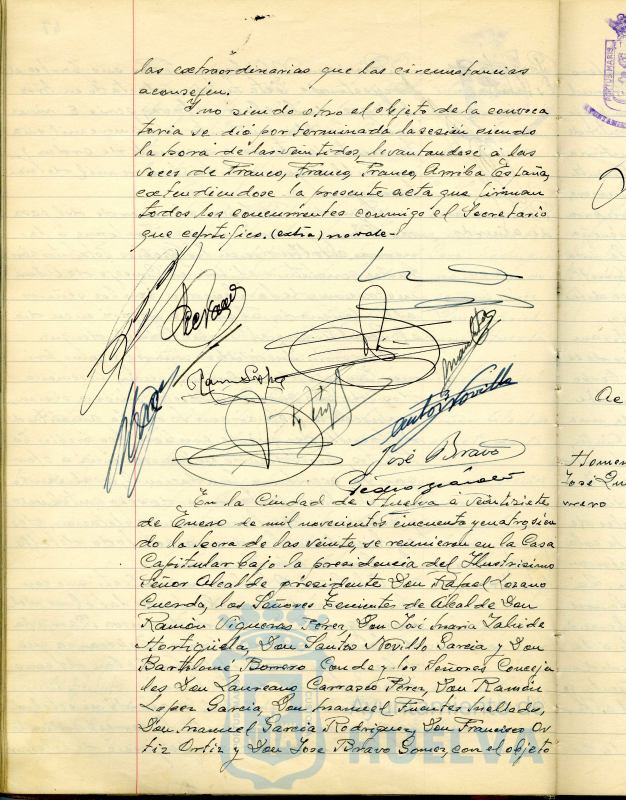 las extraordinarias que las circunstancias
aconsejen.
Y no siendo otro el objeto de la convoca
toria se dió por terminada la sesión siendo
la hora de las veintidos, levantandose a las
voces de Franco, Franco, Franco, Arriba España,
extendiendose la presente acta que firman
todos los concurrentes conmigo el Secretario
que certifico. (extra) no vale-
Ramon Lopez
Antonio Novillo
José Bravo
En la Ciudad de Huelva á veintisiete
de Enero de mil novecientos cincuenta y cuatro, sien
do la hora de las veinte, se reunieron en la Casa
Capitular bajo la presidencia del Ilustrisimo
Señor Alcalde presidente Don Rafael Lozano
Cuerda, los Señores Tenientes de Alcalde Don
Ramón Vigueras Perez, Don José Maria
Hortigüela, Don Santos Novillo Garcia y Don
Bartolomé Borrero Conde y los Señores Conceja
les Don Laureano Carrasco Perez, Don Ramón
Lopez Garcia, Don Manuel Fuentes Mellado,
Don Manuel Garcia Rodriguez, Don Francisco Or
tiz Ortiz y Don Jose Bravo Gomez, con el objeto
HUELVA